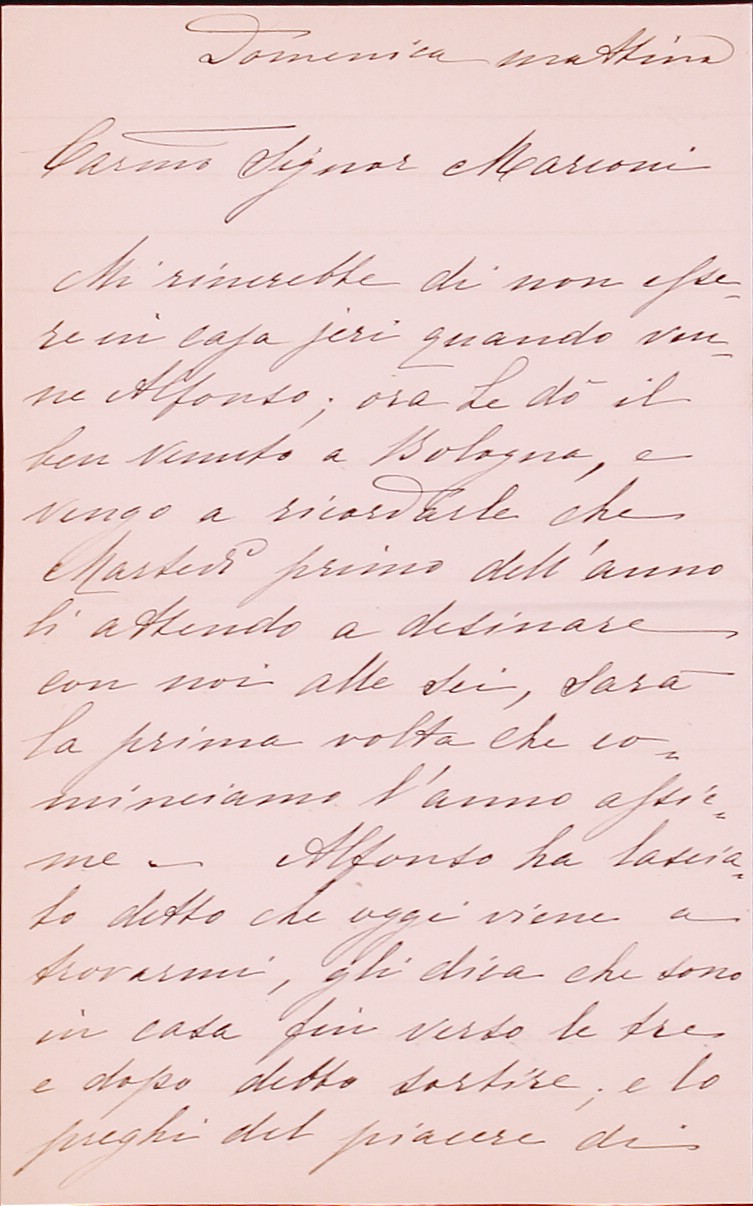 Domenica mattina
Carmo Signor Marconi
Mi rincrebbe di non esse=
re in casa jeri quando ven=
ne Alfonso; ora Le dò il
ben venuto a Bologna, e
vengo a ricordarle che
Martedì primo dell'anno
li attendo a desinare
con noi alle sei, sarà
la prima volta che co=
minciamo l'anno assie=
me — Alfonso ha lascia=
to detto che oggi viene a
trovarmi, gli dica che sono
in casa fin verso le tre
e dopo debbo sortire; e lo
preghi del piacere di